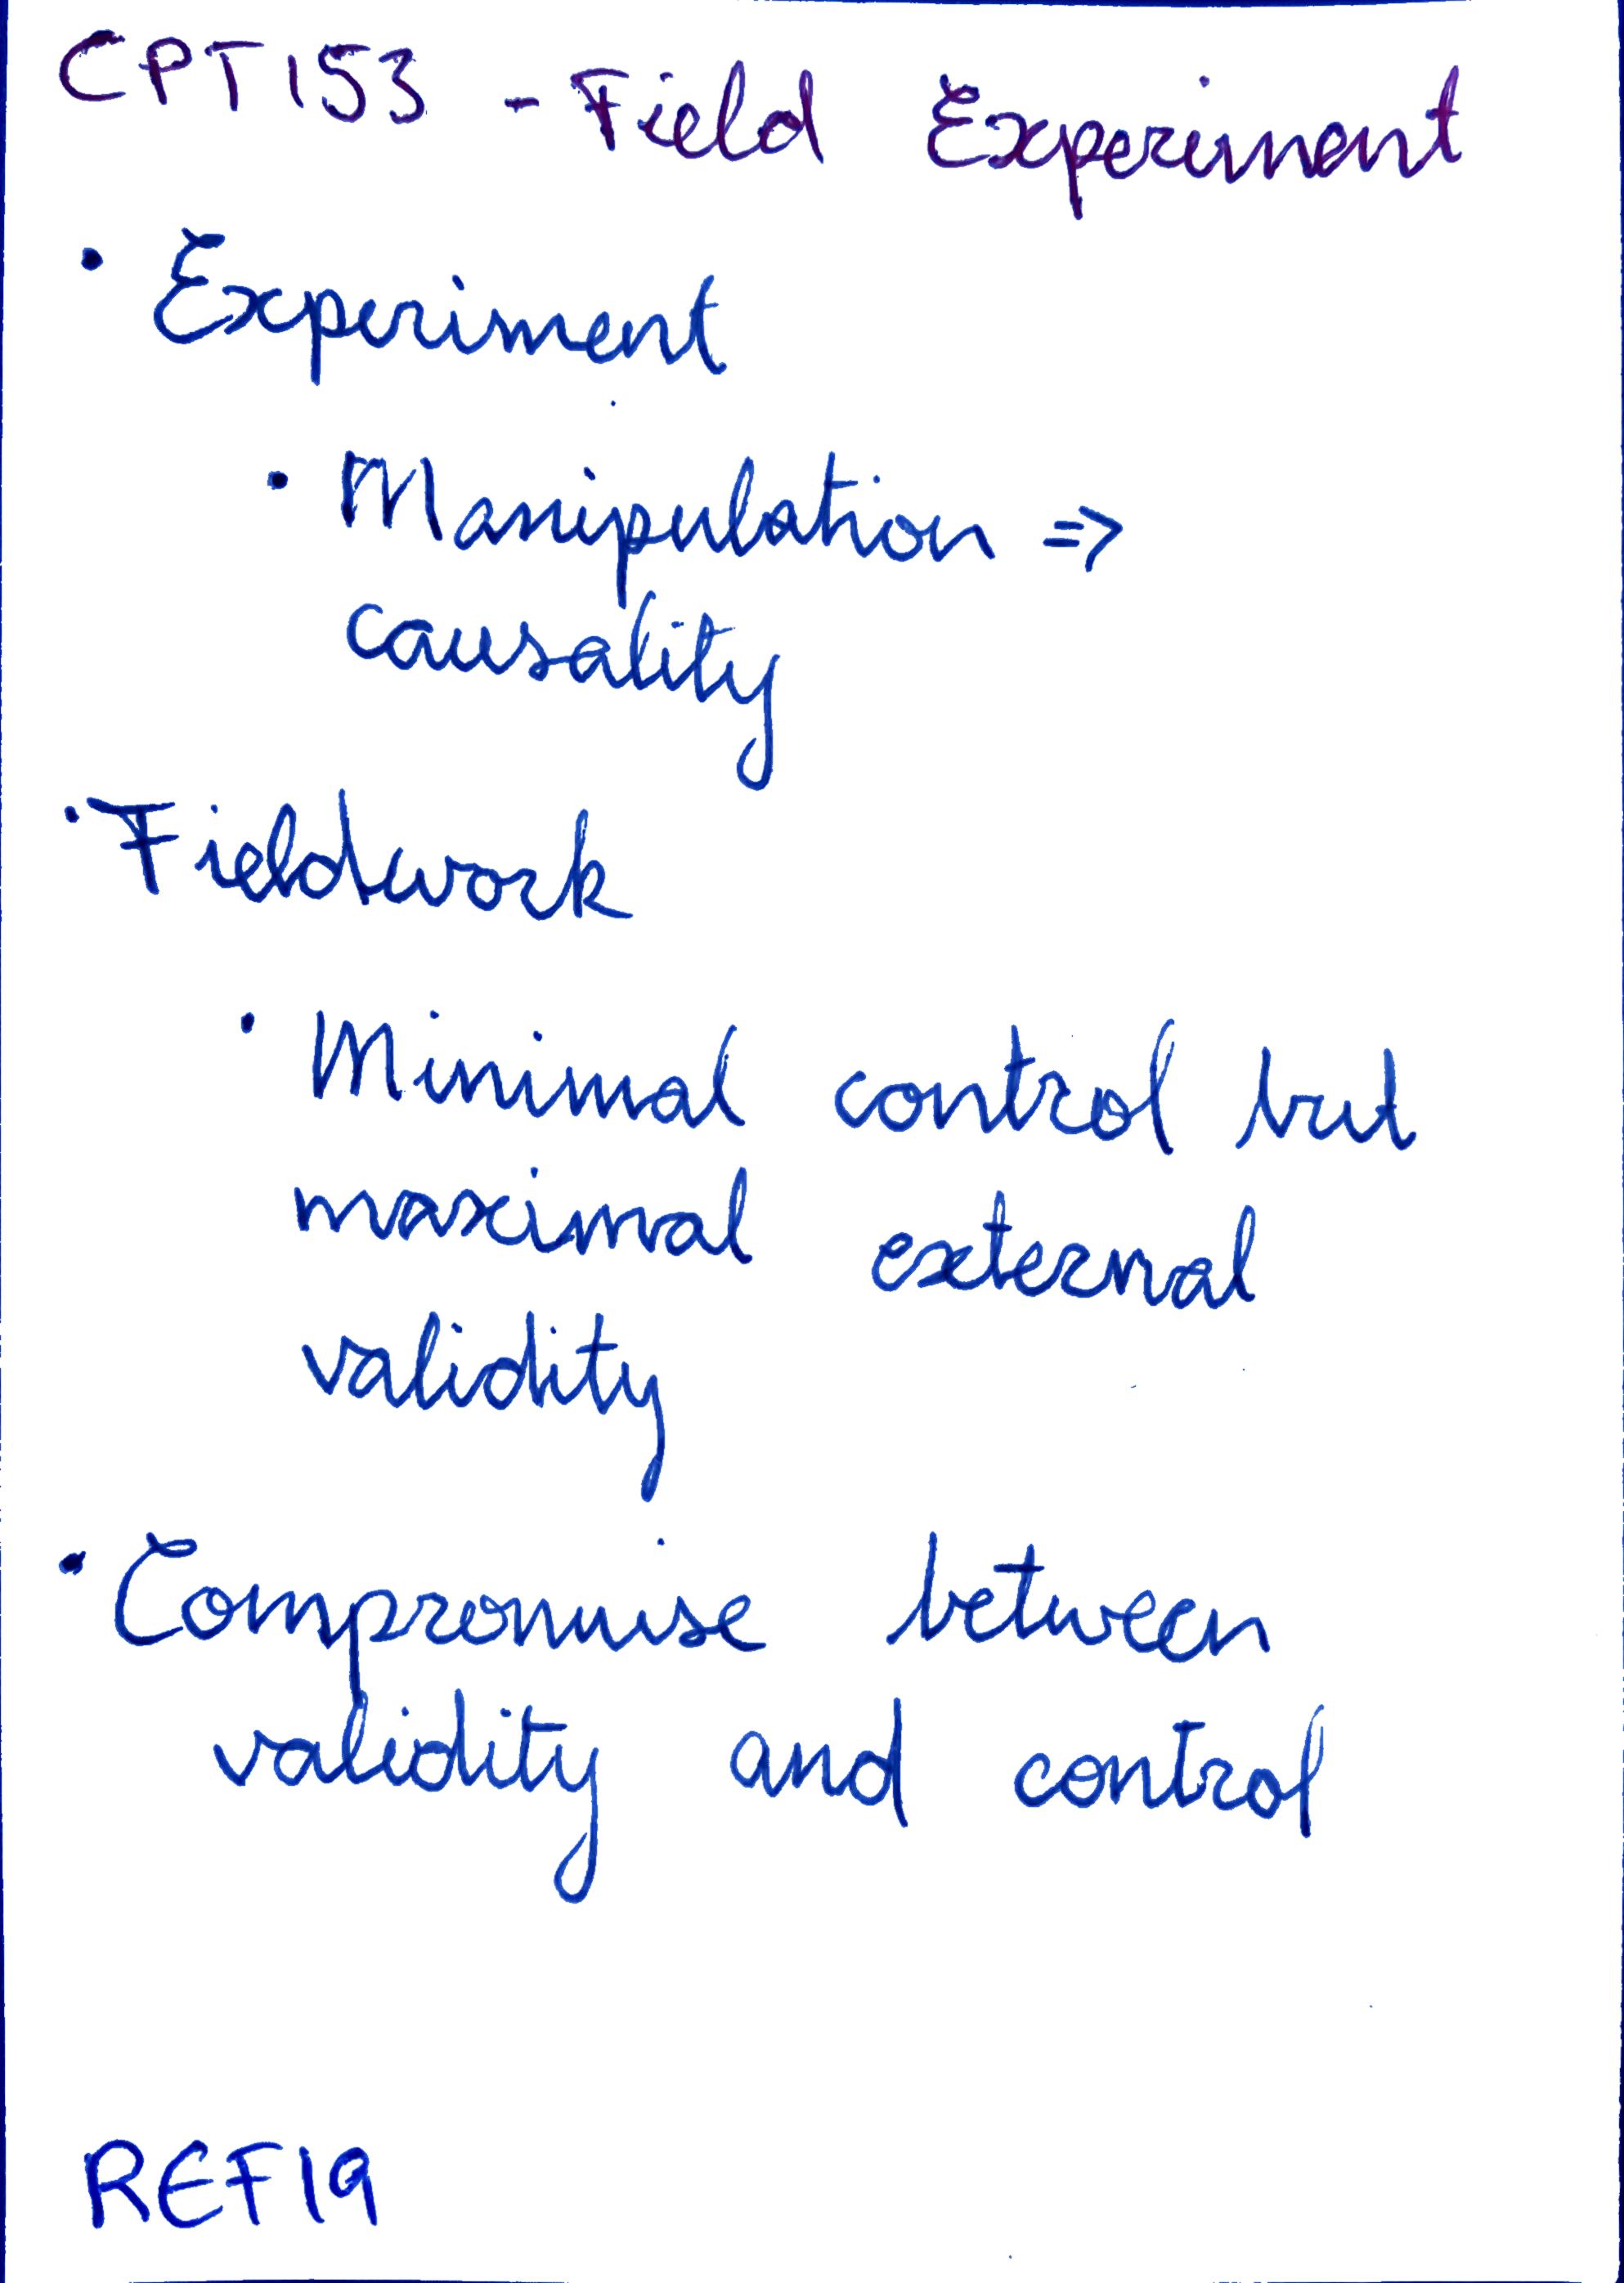 CPT153 - Field Experiment
• Experiment
• Manipulation =>
causality
• Fieldwork
• Minimal control but
maximal external
validity
• Compromise between
validity and control
REF19